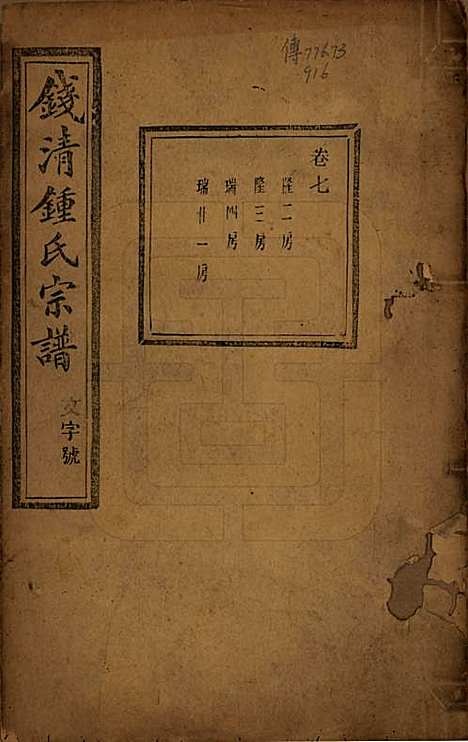 傳77673
916
卷七
隆二房
隆三房
瑞四房
瑞廿一房
錢清鍾氏宗譜
文字號